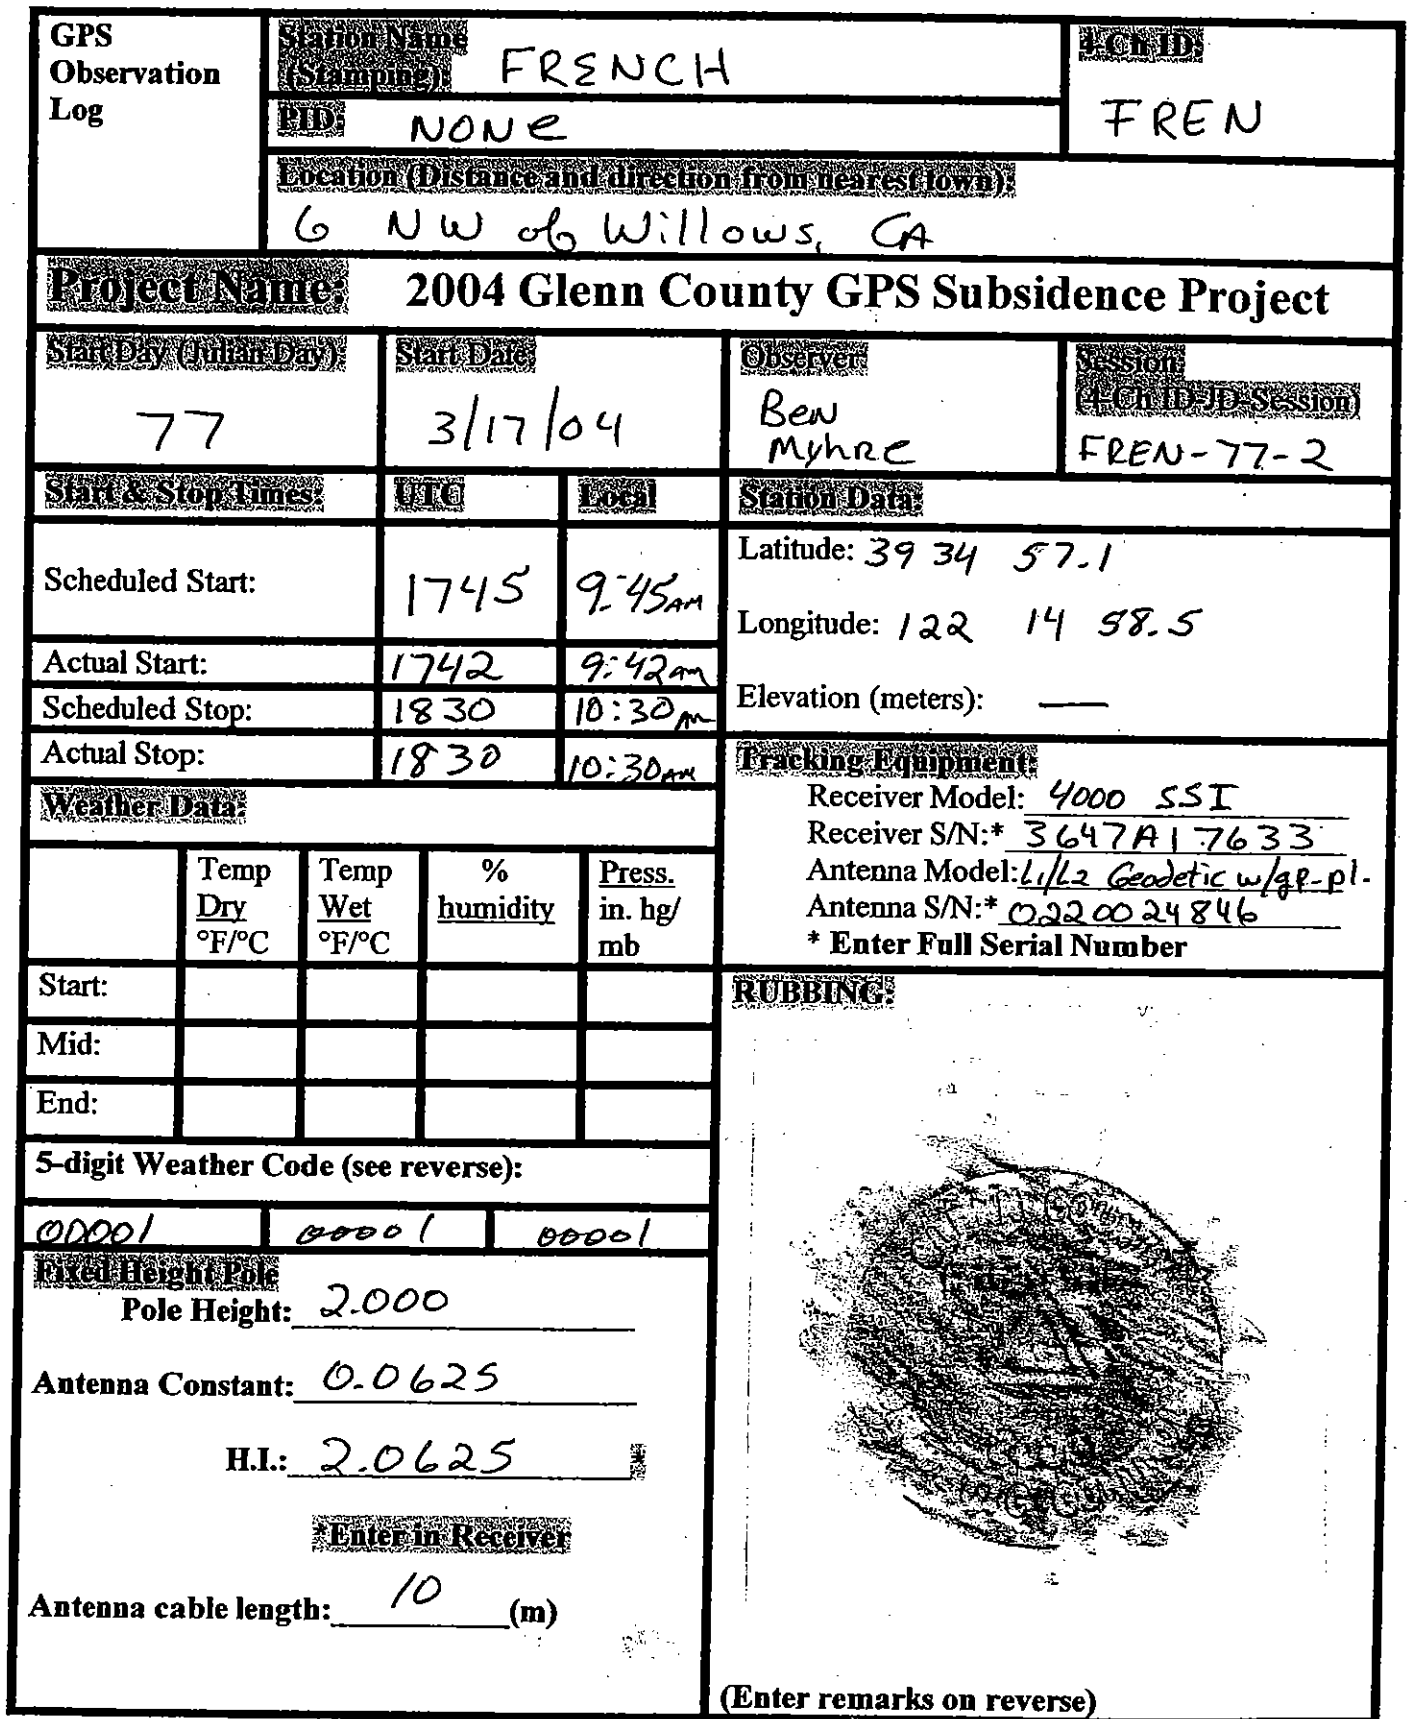 GPS
Observation
Log
Station Name
(Stamping): FRENCH
4-Ch ID:
FREN
PID: NONE
Location (Distance and direction from nearest town):
6 NW of Willows, CA
Project Name: 2004 Glenn County GPS Subsidence Project
Start Day (Julian Day):
77
Start Date
3/17/04
Observer:
Ben
Myhre
Session:
(4-Ch ID-JD-Session)
FREN-77-2
Start & Stop Times: UTC Local
Scheduled Start: 1745 9:45 AM
Actual Start: 1742 9:42 am
Scheduled Stop: 1830 10:30 AM
Actual Stop: 1830 10:30 AM
Station Data:
Latitude: 39 34 57.1
Longitude: 122 14 58.5
Elevation (meters): —
Tracking Equipment:
Receiver Model: 4000 SSI
Receiver S/N:* 3647A17633
Antenna Model: L1/L2 Geodetic w/gr-pl.
Antenna S/N:* 0220024846
* Enter Full Serial Number
Weather Data:
Temp Dry °F/°C
Temp Wet °F/°C
% humidity
Press. in. hg/ mb
Start:
Mid:
End:
5-digit Weather Code (see reverse):
00001 00001 00001
Fixed Height Pole
Pole Height: 2.000
Antenna Constant: 0.0625
H.I.: 2.0625 *
*Enter in Receiver
Antenna cable length: 10 (m)
RUBBING:
(Enter remarks on reverse)